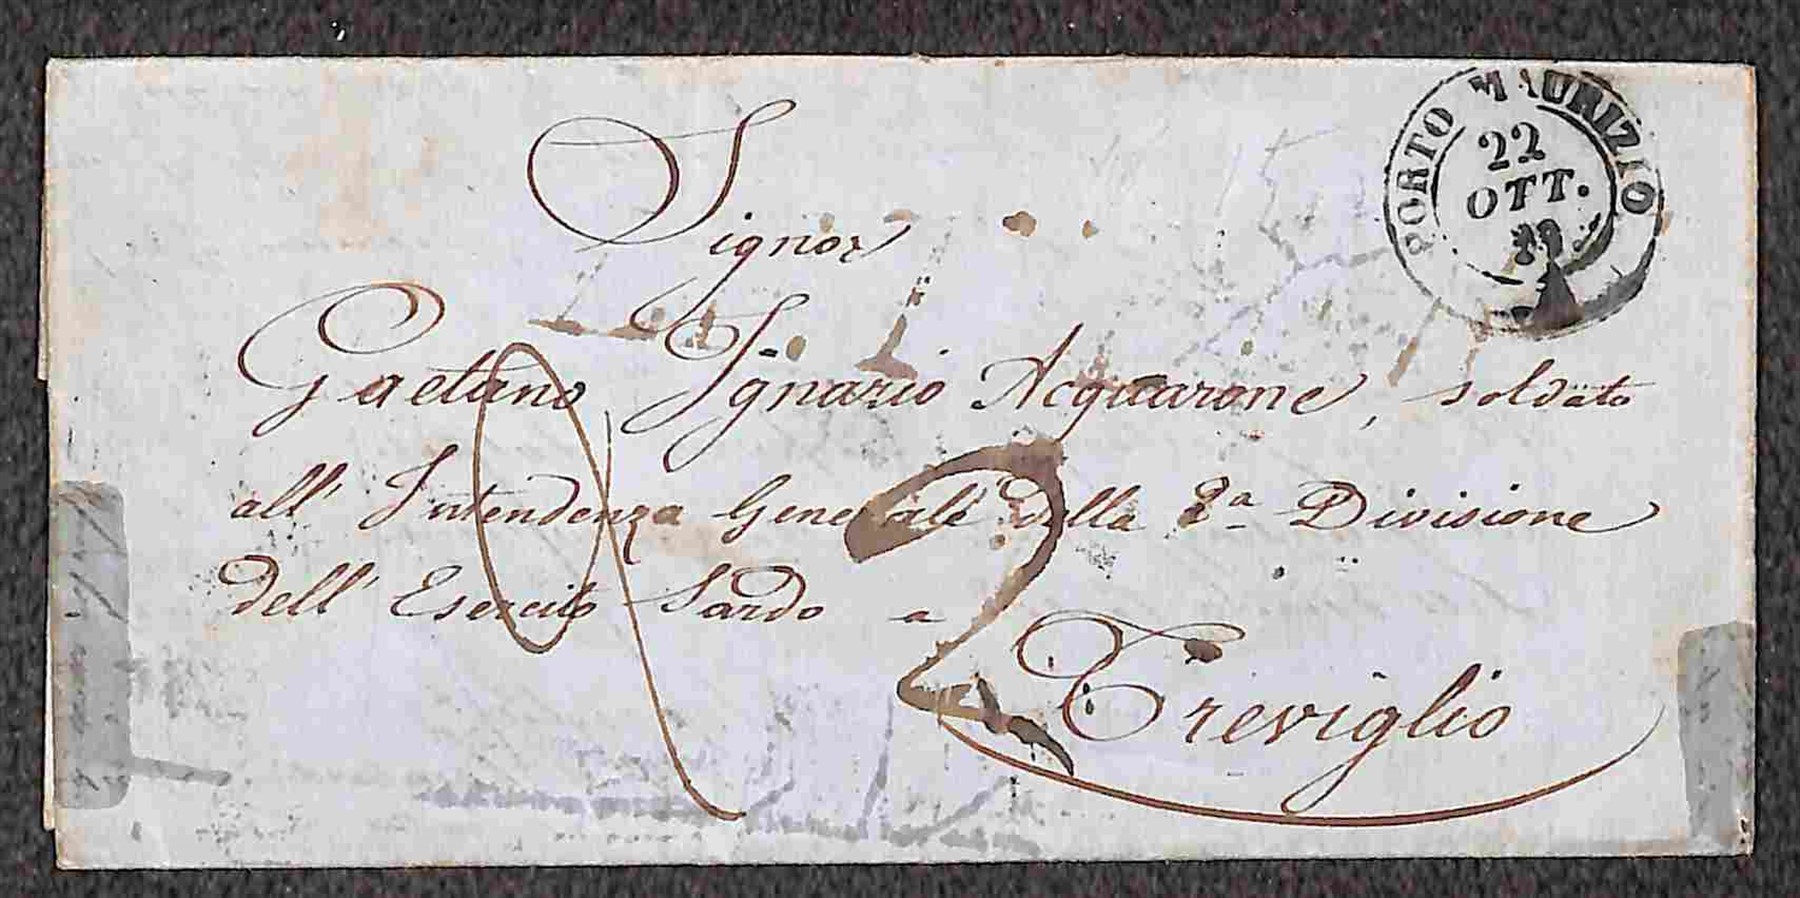 PORTO MAURIZIO
22
OTT.
Signor
Gaetano Ignazio Acquarone, soldato
all' Intendenza Generale della 2ª Divisione
dell' Esercito Sardo a
Treviglio
2